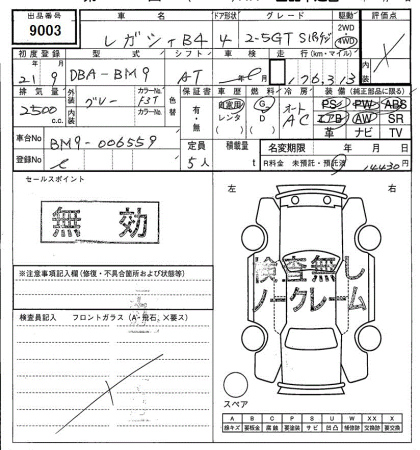 出品番号 車名 ドア形状 グレード 駆動 評価点
9003 レガシィB4 4 2-5GT SIパケ 2WD 4WD
初度登録 型式 シフト 車検 走行(km・マイル)
21 9 年 月 DBA-BM9 AT 年 月 176,313
排気量 外装 カラーNo. 色替 保証書 車歴 燃料 冷房 装備(純正部品に限る)
2500 c.c. グレー F3T 有・無 自家用 レンタ ( ) G D ( ) オート AC PS PW ABS
内装 カラーNo. エアB AW SR
革 ナビ TV
車台No BM9-006559 定員 5人 積載量 t 名変期限 年 月 日
登録No R料金 未預託・預託済 14430円
セールスポイント 左 右
無効
検査無し
ノークレーム
※注意事項記入欄(修復・不具合箇所および状態等)
検査員記入 フロントガラス(A・飛石、×要ス)
スペア
A B C P S U W X XX ×
線キズ 要板金 腐蝕 要塗装 サビ 凹凸 補修跡 交換跡 要交換